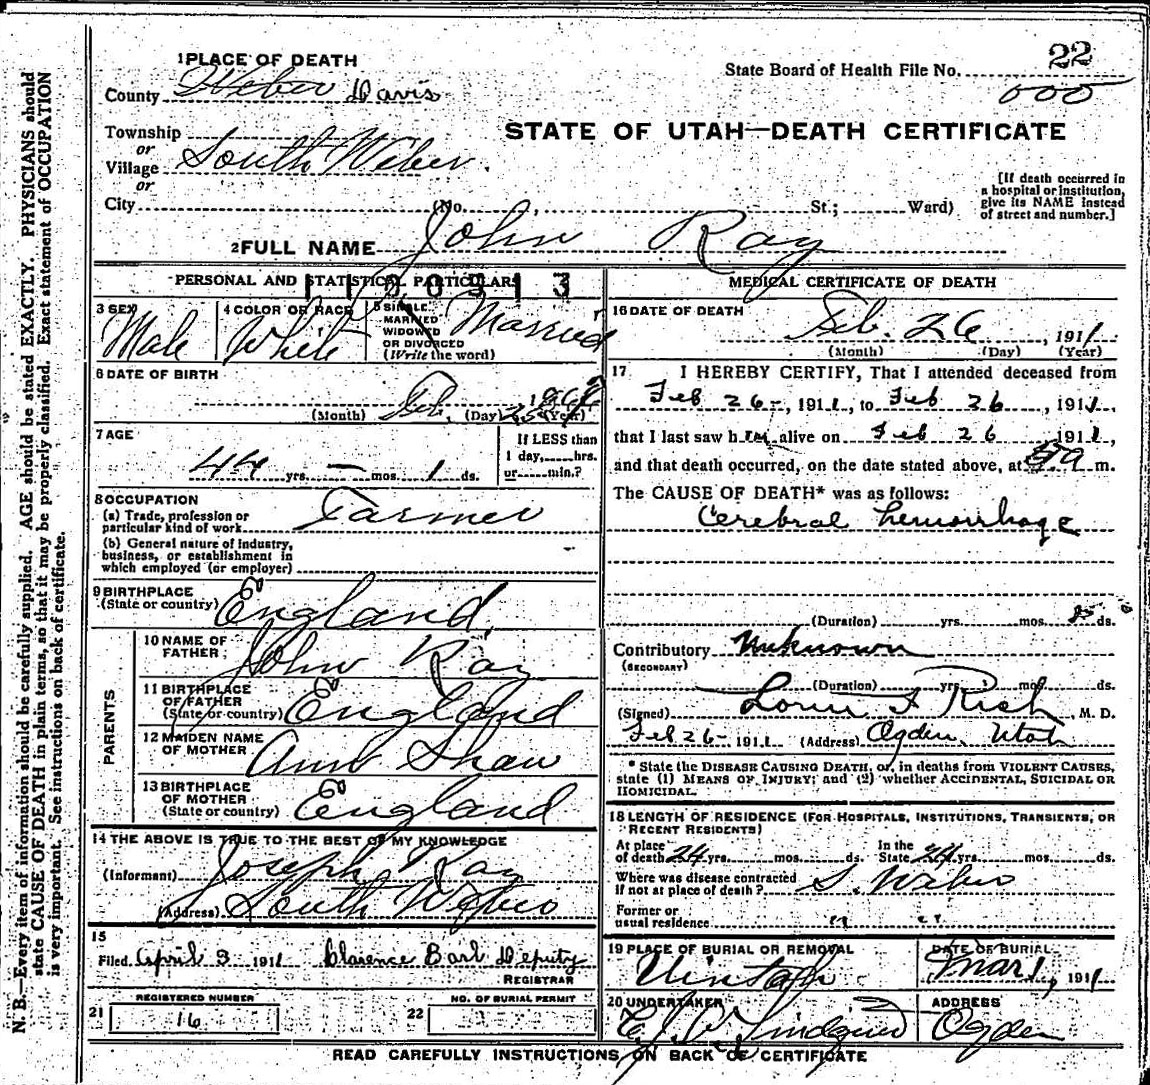 1 PLACE OF DEATH
State Board of Health File No. 22
County Weber Davis
000
Township
or
Village South Weber.
or
City (No. , St.; Ward)
STATE OF UTAH—DEATH CERTIFICATE
[If death occurred in
a hospital or institution,
give its NAME instead
of street and number.]
2 FULL NAME John Ray
PERSONAL AND STATISTICAL PARTICULARS
3 SEX Male
4 COLOR OR RACE White
5 SINGLE
MARRIED
WIDOWED
OR DIVORCED
(Write the word)
Married
6 DATE OF BIRTH
Feb. 25
(Month) (Day) (Year)
7 AGE
44 yrs. — mos. 1 ds.
If LESS than
1 day, hrs.
or min.?
8 OCCUPATION
(a) Trade, profession or
particular kind of work Farmer
(b) General nature of industry,
business, or establishment in
which employed (or employer)
9 BIRTHPLACE
(State or country) England
PARENTS
10 NAME OF
FATHER John Ray
11 BIRTHPLACE
OF FATHER
(State or country) England
12 MAIDEN NAME
OF MOTHER Ann Shaw
13 BIRTHPLACE
OF MOTHER
(State or country) England
14 THE ABOVE IS TRUE TO THE BEST OF MY KNOWLEDGE
(Informant) Joseph Ray
(Address) South Weber
15
Filed April 3 1911 Clarence Barl Deputy
REGISTRAR
21 REGISTERED NUMBER
16
22 NO. OF BURIAL PERMIT
MEDICAL CERTIFICATE OF DEATH
16 DATE OF DEATH
Feb. 26, 1911
(Month) (Day) (Year)
17 I HEREBY CERTIFY, That I attended deceased from
Feb 26-, 1911, to Feb 26, 1911,
that I last saw him alive on Feb 26 1911,
and that death occurred, on the date stated above, at 9 m.
The CAUSE OF DEATH* was as follows:
Cerebral hemorrhage
(Duration) yrs. mos. ds.
Contributory Unknown
(SECONDARY)
(Duration) yrs. mos. ds.
(Signed) Lorin F Rich, M. D.
Feb 26- 1911 (Address) Ogden, Utah
* State the DISEASE CAUSING DEATH, or, in deaths from VIOLENT CAUSES,
state (1) MEANS OF INJURY; and (2) whether ACCIDENTAL, SUICIDAL OR
HOMICIDAL.
18 LENGTH OF RESIDENCE (FOR HOSPITALS, INSTITUTIONS, TRANSIENTS, OR
RECENT RESIDENTS)
At place
of death 24 yrs. mos. ds.
In the
State 24 yrs. mos. ds.
Where was disease contracted
if not at place of death? S. Weber
Former or
usual residence " "
19 PLACE OF BURIAL OR REMOVAL
Uintah
DATE OF BURIAL
Mar 1, 1911
20 UNDERTAKER
Lindquist
ADDRESS
Ogden
READ CAREFULLY INSTRUCTIONS ON BACK OF CERTIFICATE
N. B.—Every item of information should be carefully supplied. AGE should be stated EXACTLY. PHYSICIANS should
state CAUSE OF DEATH in plain terms, so that it may be properly classified. Exact statement of OCCUPATION
is very important. See instructions on back of certificate.